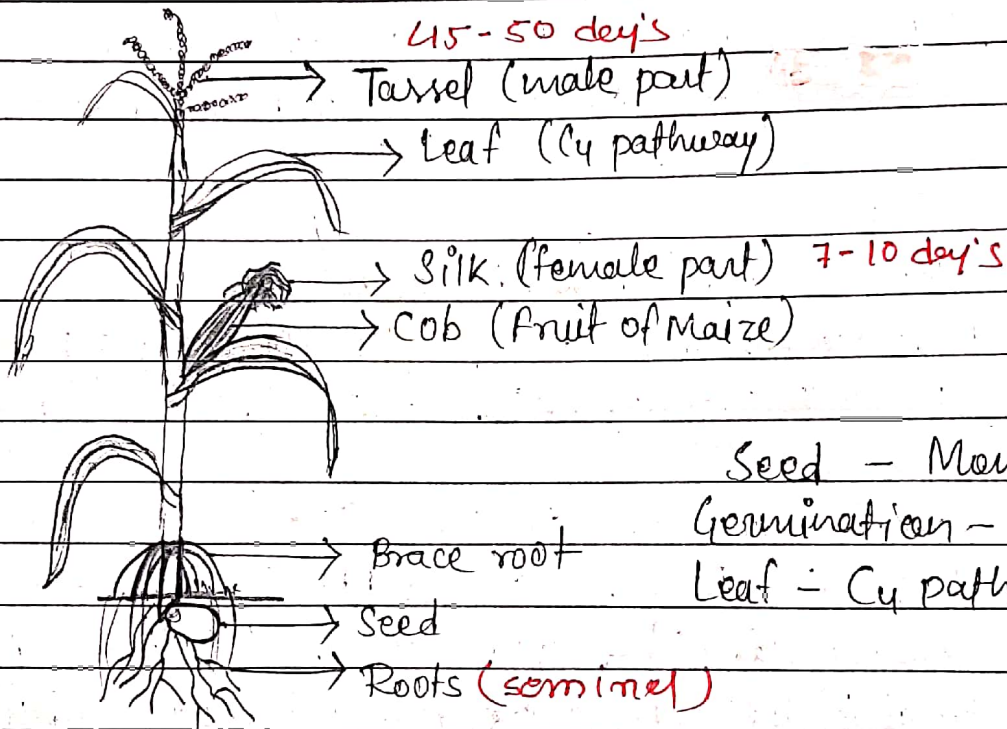 45-50 dey's
Tassel (male part)
Leaf (C4 pathway)
Silk. (female part) 7-10 day's
Cob (Fruit of Maize)
Seed - Mo
Germination -
Leaf - C4 path
Brace root
Seed
Roots (seminel)